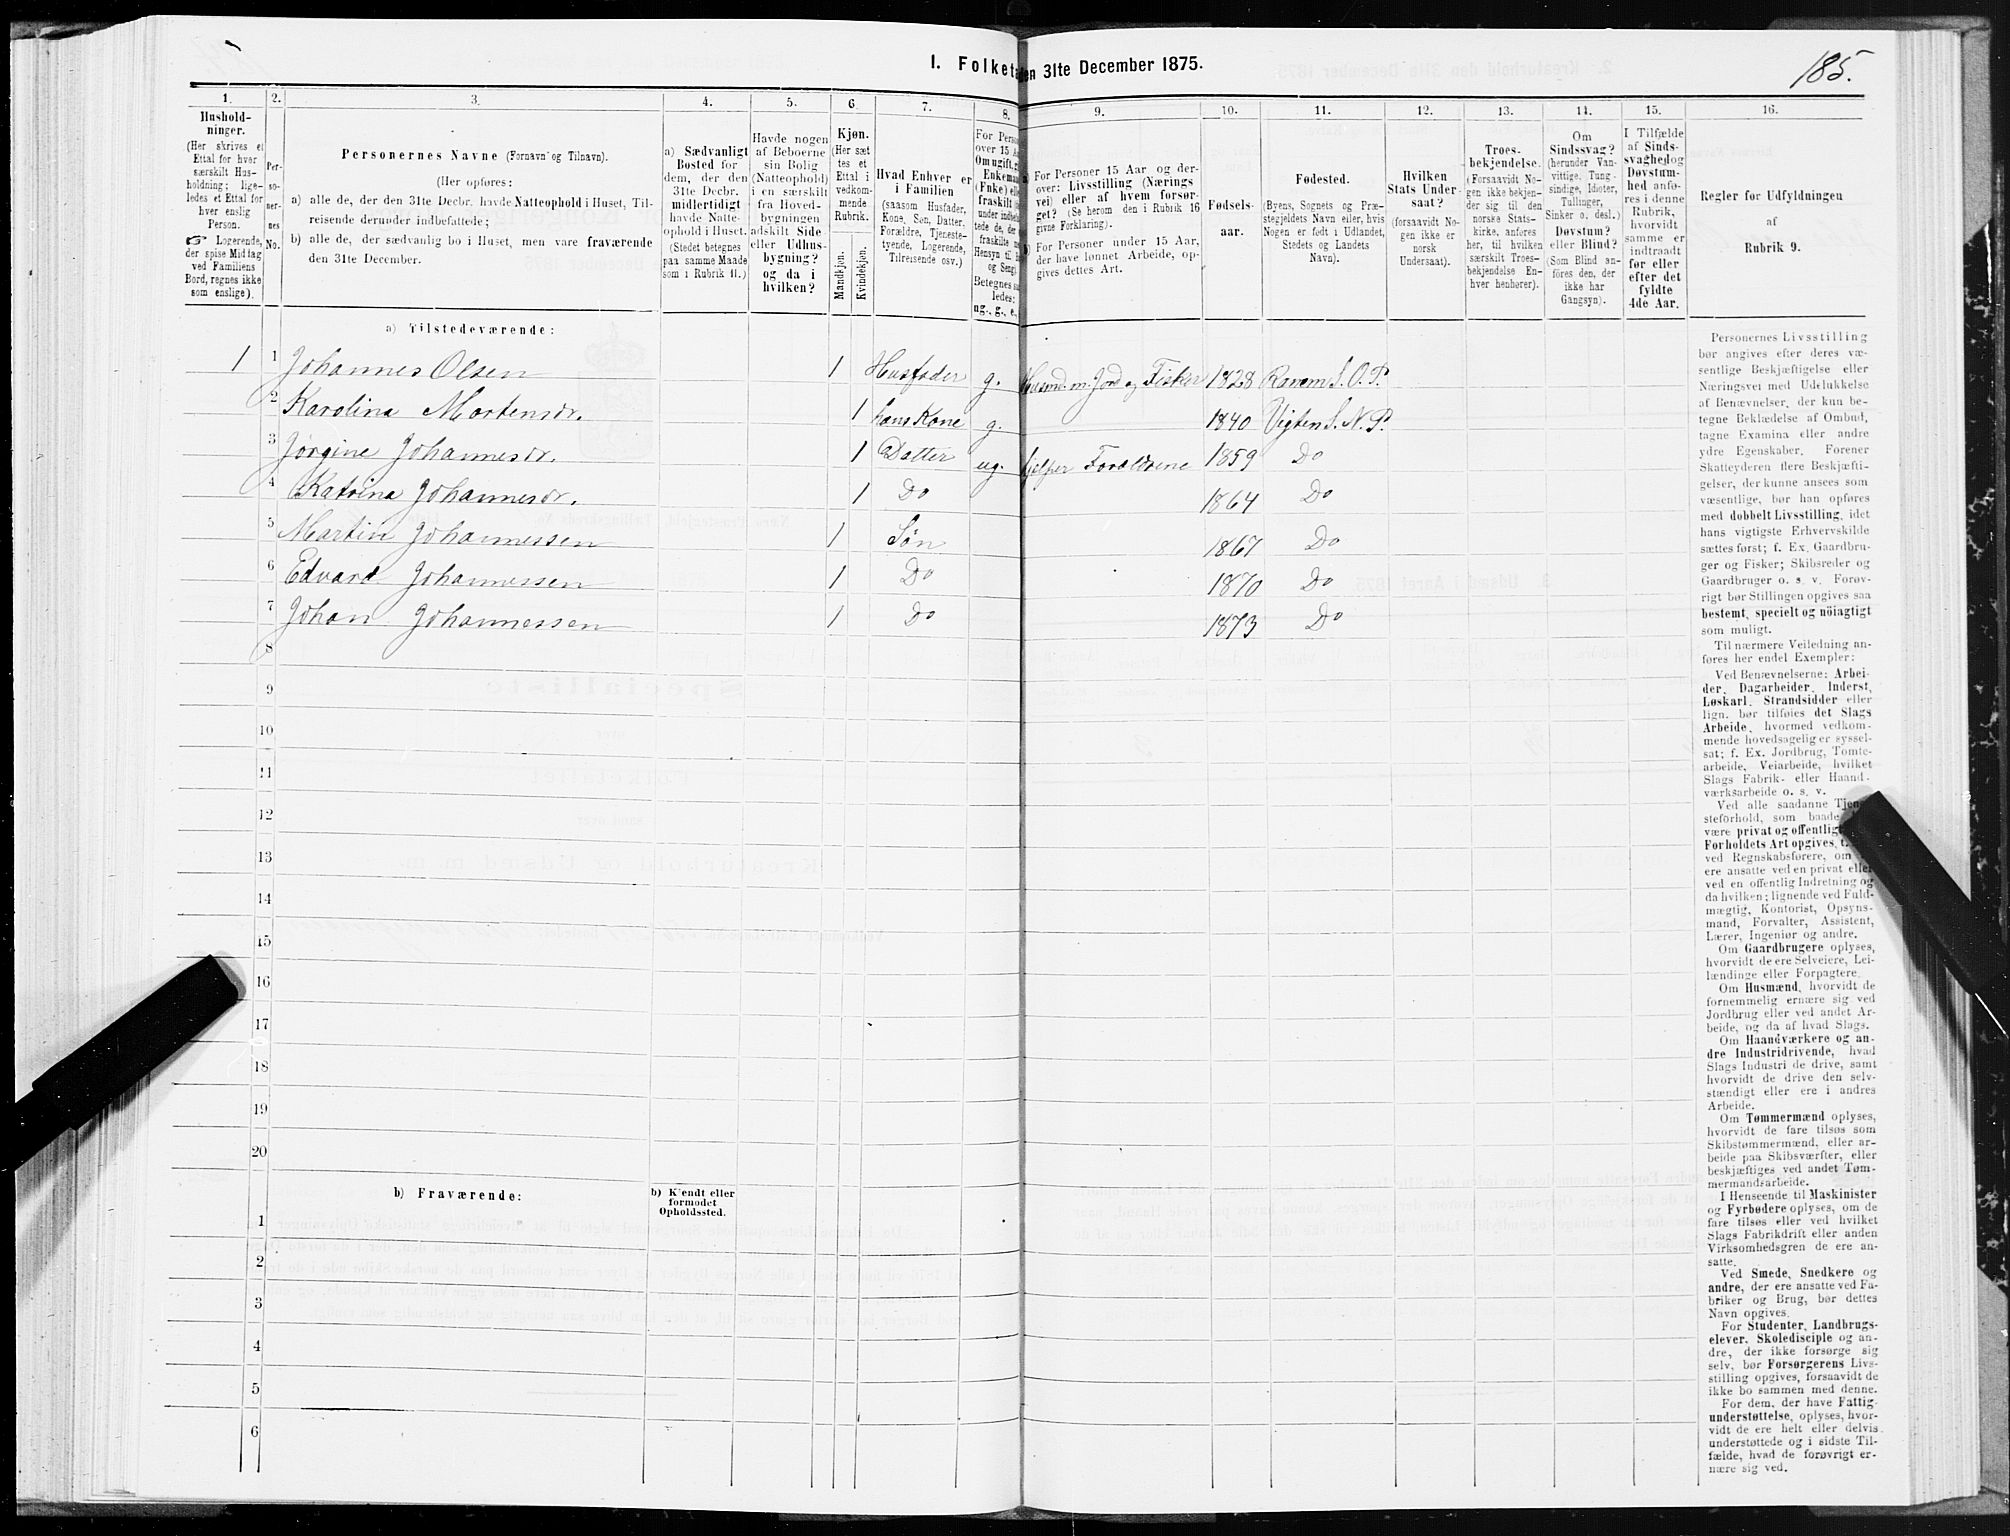 185.
I. Folketa
en 31te December 1875.
1. 2. 3. 4. 5. 6. 7. 8. 9. 10. 11. 12. 13. 14. 15. 16.
Hushold-
ninger.
(Her skrives et
Ettal for hver
særskilt Hus-
holdning; lige-
ledes et Ettal for
hver enslig
Person.
☞ Logerende,
der spise Middag
ved Familiens
Bord, regnes ikke
som enslige).
Per-
so-
ner-
nes
No.
Personernes Navne (Fornavn og Tilnavn).
(Her opføres:
a) alle de, der den 31te Decbr. havde Natteophold i Huset, Til-
reisende derunder indbefattede;
b) alle de, der sædvanlig bo i Huset, men vare fraværende
den 31te December.
a) Sædvanligt
Bosted for
dem, der den
31te Decbr.
midlertidigt
havde Natte-
ophold i Huset.
(Stedet betegnes
paa samme Maade
som i Rubrik 11.)
Havde nogen
af Beboerne
sin Bolig
(Natteophold)
i en særskilt
fra Hoved-
bygningen
adskilt Side
eller Udhus-
bygning?
og da i
hvilken?
Kjøn.
(Her sæt-
tes et
Ettal i
vedkom-
mende
Rubrik.
Mandkjøn.
Kvindekjøn.
Hvad Enhver er
i Familien
(saasom Husfader,
Kone, Søn, Datter,
Forældre, Tjeneste-
tyende, Logerende,
Tilreisende osv.)
For Perso
over 15 A
Om ugift, g
Enkeman
(Fnke) elle
fraskilt
Hensyn til
og Seng).
Betegnes saa
ledes:
ug., g., e.,
For Personer 15 Aar og der-
over: Livsstilling (Nærings
vei) eller af hvem forsør-
get? (Se herom den i Rubrik 16
givne Forklaring).
b) For Personer under 15 Aar,
der have lønnet Arbeide, op-
gives dettes Art.
Fødsels-
aar.
Fødested.
(Byens, Sognets og Præ-
stegjeldets Navn eller, hvis
Nogen er født i Udlandet,
Stedets og Landets
Navn).
Hvilken
Stats Under-
saat?
(forsaavidt No-
gen ikke er
norsk
Undersaat).
Troes-
bekjendelse.
(Forsaavidt No-
gen ikke bekjen-
der sig til den
norske Stats-
kirke, anføres
her, til hvilken
særskilt Troes-
bekjendelse En-
hver henhører).
Om
Sindssvag?
(herunder Van-
vittige, Tung-
sindige, Idioter,
Tullinger,
Sinker o. desl.)
Døvstum?
eller Blind?
(Som Blind an-
føres den, der
ikke har
Gangsyn).
I Tilfælde
af Sinds-
svaghed og
Døvstum-
hed anfø-
res i denne
Rubrik,
hvorvidt
samme er
indtraadt
før eller
efter det
fyldte
4de Aar.
Regler for Udfyldningen
af
Rubrik 9.
a) Tilstedeværende:
1 1 Johannes Olsen 1 Husfader g. Husmd. m. Jord og Fisker 1828 Ranem S. O. P.
2 Karolina Martensdr. 1 hans Kone g. 1840 Vigten S. N. P.
3 Jørgine Johannesdr. 1 Datter ug. hjelper Forældrene 1859 Do
4 Katrina Johannesdr. 1 Do 1864 Do
5 Martin Johannessen 1 Søn 1867 Do
6 Edvard Johannessen 1 Do 1870 Do
7 Johan Johannessen 1 Do 1873 Do
8
9
10
11
12
13
14
15
16
17
18
19
20
b) Fraværende:
b) Kjendt eller
formodet
Opholdssted.
1
2
3
4
5
6
Personernes Livsstilling
bør angives efter deres væ-
sentlige Beskjæftigelse eller
Næringsvei med Udelukkelse
af Benævnelser, der kun be-
tegne Beklædelse af Ombud,
tagne Examina eller andre
ydre Egenskaber. Forener
Skatteyderen flere Beskjæfti-
gelser, der kunne ansees som
væsentlige, bør han opføres
med dobbelt Livsstilling, idet
hans vigtigste Erhvervskilde
sættes først; f. Ex. Gaardbru-
ger og Fisker; Skibsreder og
Gaardbruger o. s. v. Forøv-
rigt bør Stillingen opgives saa
bestemt, specielt og nöiagtigt
som muligt.
Til nærmere Veiledning an-
føres her endel Exempler:
Ved Benævnelserne: Arbei-
der, Dagarbeider, Inderst,
Løskarl, Strandsidder eller
lign. bør tilføies det Slags
Arbeide, hvormed vedkom-
mende hovedsagelig er syssel-
sat; f. Ex. Jordbrug, Tomte-
arbeide, Veiarbeide, hvilket
Slags Fabrik- eller Haand-
værksarbeide o. s. v.
Ved alle saadanne Tjene
steforhold, som baade
være privat og offentlig
Forholdets Art opgives, t.
ved Regnskabsførere, om
ere ansatte ved en privat eller
ved en offentlig Indretning og
da hvilken; lignende ved Fuld-
mægtig, Kontorist, Opsyns-
mand, Forvalter, Assistent,
Lærer, Ingeniør og andre.
Om Gaardbrugere oplyses,
hvorvidt de ere Selveiere, Lei-
lændinge eller Forpagtere.
Om Husmænd, hvorvidt de
fornemmelig ernære sig ved
Jordbrug eller ved andet Ar-
beide, og da af hvad Slags.
Om Haandværkere og an-
dre Industridrivende, hvad
Slags Industri de drive, samt
hvorvidt de drive den selv-
stændigt eller ere i andres
Arbeide.
Om Tømmermænd oplyses,
hvorvidt de fare tilsøs som
Skibstømmermænd, eller ar-
beide paa Skibsværfter, eller
beskjæftiges ved andet Tøm-
mermandsarbeide.
I Henseende til Maskinister
og Fyrbødere oplyses, om de
fare tilsøs eller ved hvilket
Slags Fabrikdrift eller anden
Virksomhedsgren de ere an-
satte.
Ved Smede, Snedkere og
andre, der ere ansatte ved Fa-
briker og Brug, bør dettes
Navn opgives.
For Studenter, Landbrugs-
elever, Skoledisciple og an-
dre, der ikke forsørge sig
selv, bør Forsørgerens Livs-
stilling opgives, forsaavidt de
ikke bo sammen med denne.
For dem, der have Fattig-
understøttelse, oplyses, hvor-
vidt de ere helt eller delvis
understøttede og i sidste Til-
fælde, hvad de forøvrigt er-
nære sig ved.